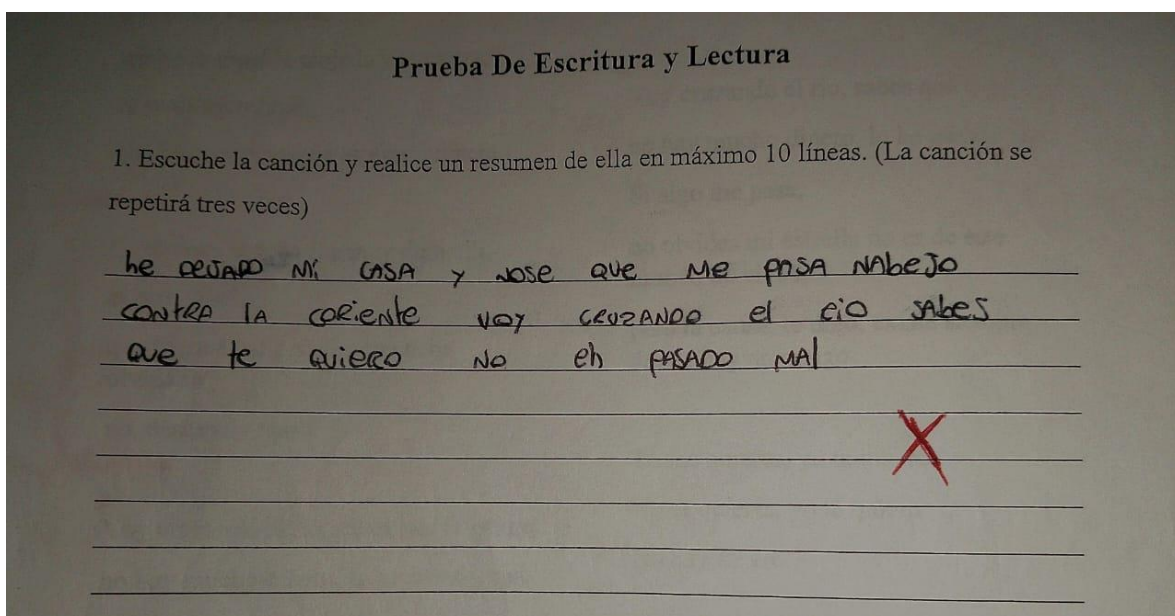 Prueba De Escritura y Lectura
1. Escuche la canción y realice un resumen de ella en máximo 10 líneas. (La canción se
repetirá tres veces)
he DEJADO Mi CASA y NOSE QUE Me PASA NAbeJo
CONtRA lA CORiente VOY CRUZANDO el RiO SAbeS
QUe te QUieRO NO eh PASADO MAl